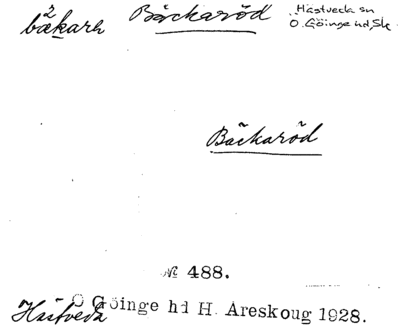 bäkarh Bäckaröd Hästveda sn
Ö. Göinge hd, Sk
Bäckaröd
№ 488.
Hästveda
Ö Göinge hd H. Areskoug 1928.